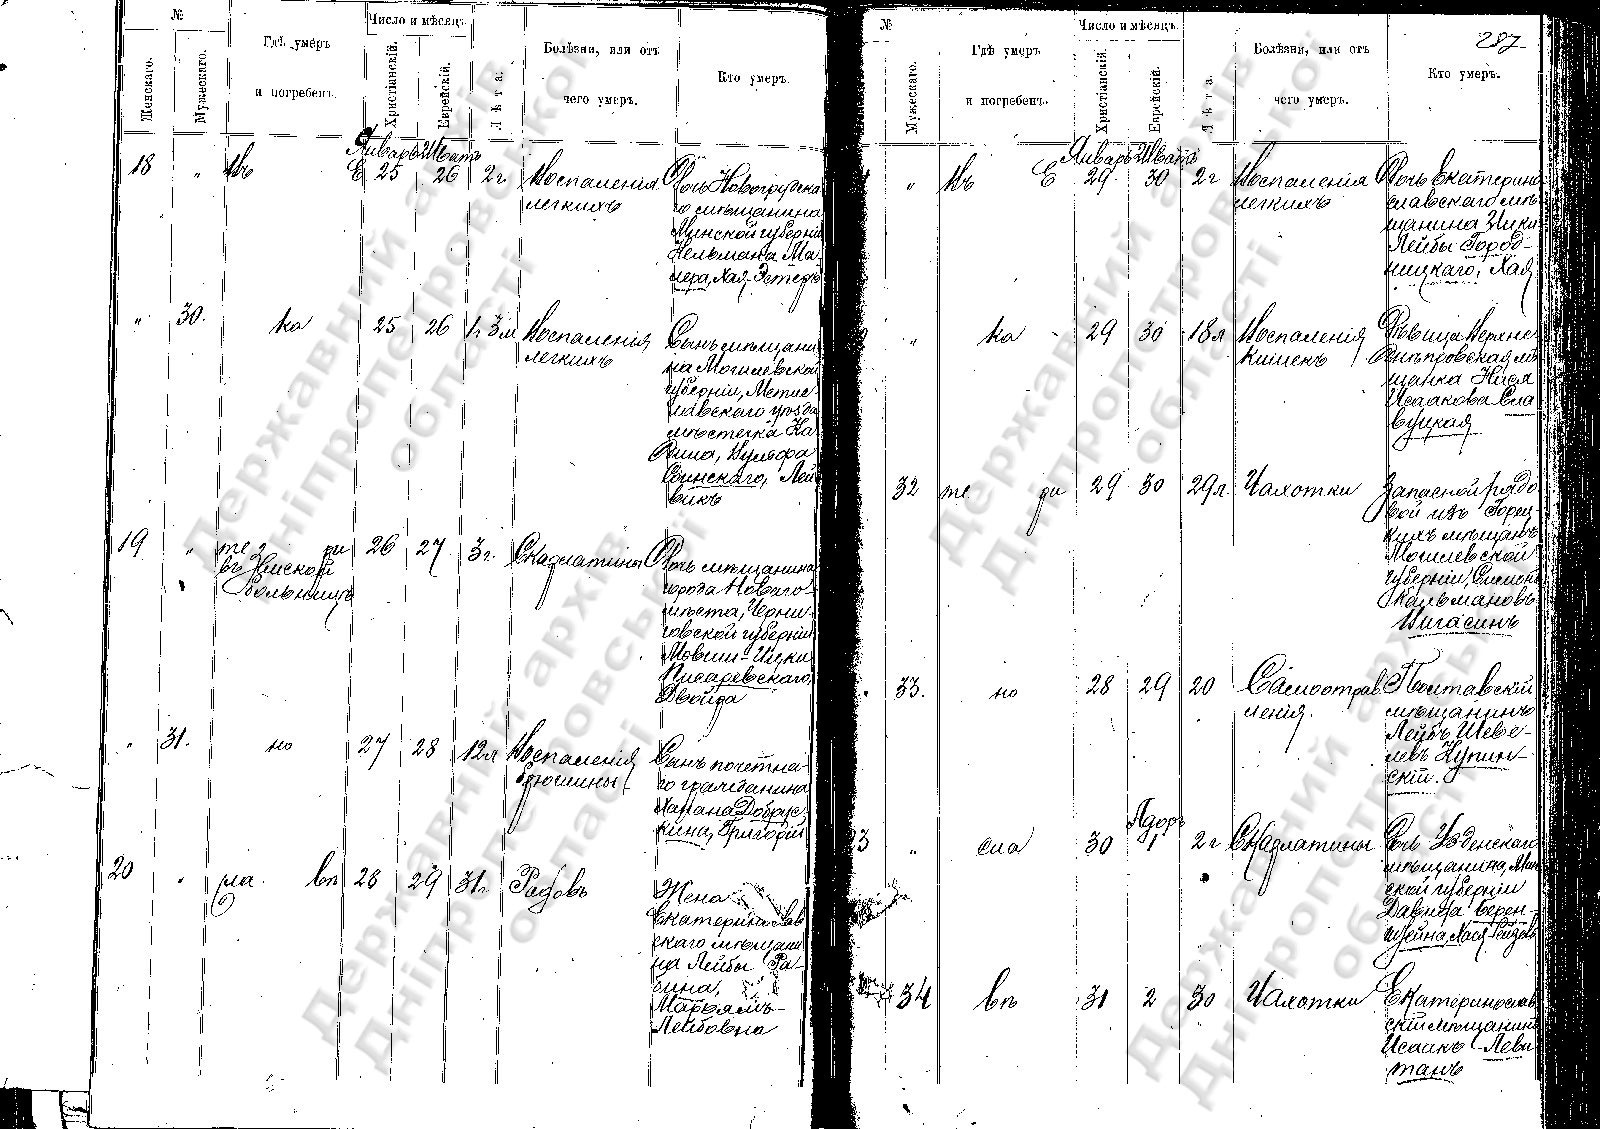 №
Женскаго.
Мужескаго.
Гдѣ умеръ
и погребенъ.
Число и мѣсяцъ.
Христіанскій.
Еврейскій.
Лѣта.
Болѣзни, или отъ
чего умеръ.
Кто умеръ.
Январь Шватъ
18 " Въ Е 25 26 2 г. Воспаленія
легкихъ
Дочь Новогрудска
го мѣщанина
Минской губерніи
Кельмана Ма-
лера, Хая-Эстеръ
" 30. ка 25 26 1 г 3 м Воспаленія
легкихъ
Сынъ мѣщани
на Могилевской
губерніи, Мстис-
лавскаго уѣзда
мѣстечка Ка
Лей
викъ
19 " те ри 26 27 3 г. Скарлатины
въ Земской
больницѣ
Дочь мѣщанина
города Новаго-
мѣста, Черни-
говской губерніи
Мовши-Ицки
Писаревскаго,
Двойра
" 31. но 27 28 12 л Воспаленія
брюшины
Сынъ почетна-
го гражданина
Добрус
кина, Григорій
20 " сла вѣ 28 29 31 г Родовъ
Жена
Екатеринослав
скаго мѣщани
на Лейбы Ра-
бина,
Марьямъ-
Лейбовна
287
№
Мужескаго.
Гдѣ умеръ
и погребенъ.
Число и мѣсяцъ.
Христіанскій.
Еврейскій.
Лѣта.
Болѣзни, или отъ
чего умеръ.
Кто умеръ.
Январь Шватъ
" Въ Е 29 30 2 г Воспаленія
легкихъ
Дочь Екатерино
славскаго мѣ
щанина Ицки
Лейбы Город-
ницкаго, Хая
" ка 29 30 18 л Воспаленія
кишекъ
Дѣвица Верхне
Днѣпровская мѣ
щанка Нися
Исаакова Сла
вуцкая
32 те ри 29 30 29 л. Чахотки
Запасной рядо
вой изъ Горец-
кихъ мѣщанъ
Могилевской
губерніи, Симонъ
Кальмановъ
Вигасинъ
" 33. но 28 29 20 Самоотрав
ленія.
Полтавскій
мѣщанинъ
Лейбъ Шеве-
левъ Купин-
скій.
Адаръ
23 " сла 30 1 2 г Скарлатины
Дочь Узденскаго
мѣщанина, Мин
ской губерніи
Давида Берен-
штейна, Хася Рейзель
34 вѣ 31 2 30 Чахотки
Екатеринослав
скій мѣщанинъ
Исаакъ Леви
танъ
Державний архів
Дніпропетровської
області